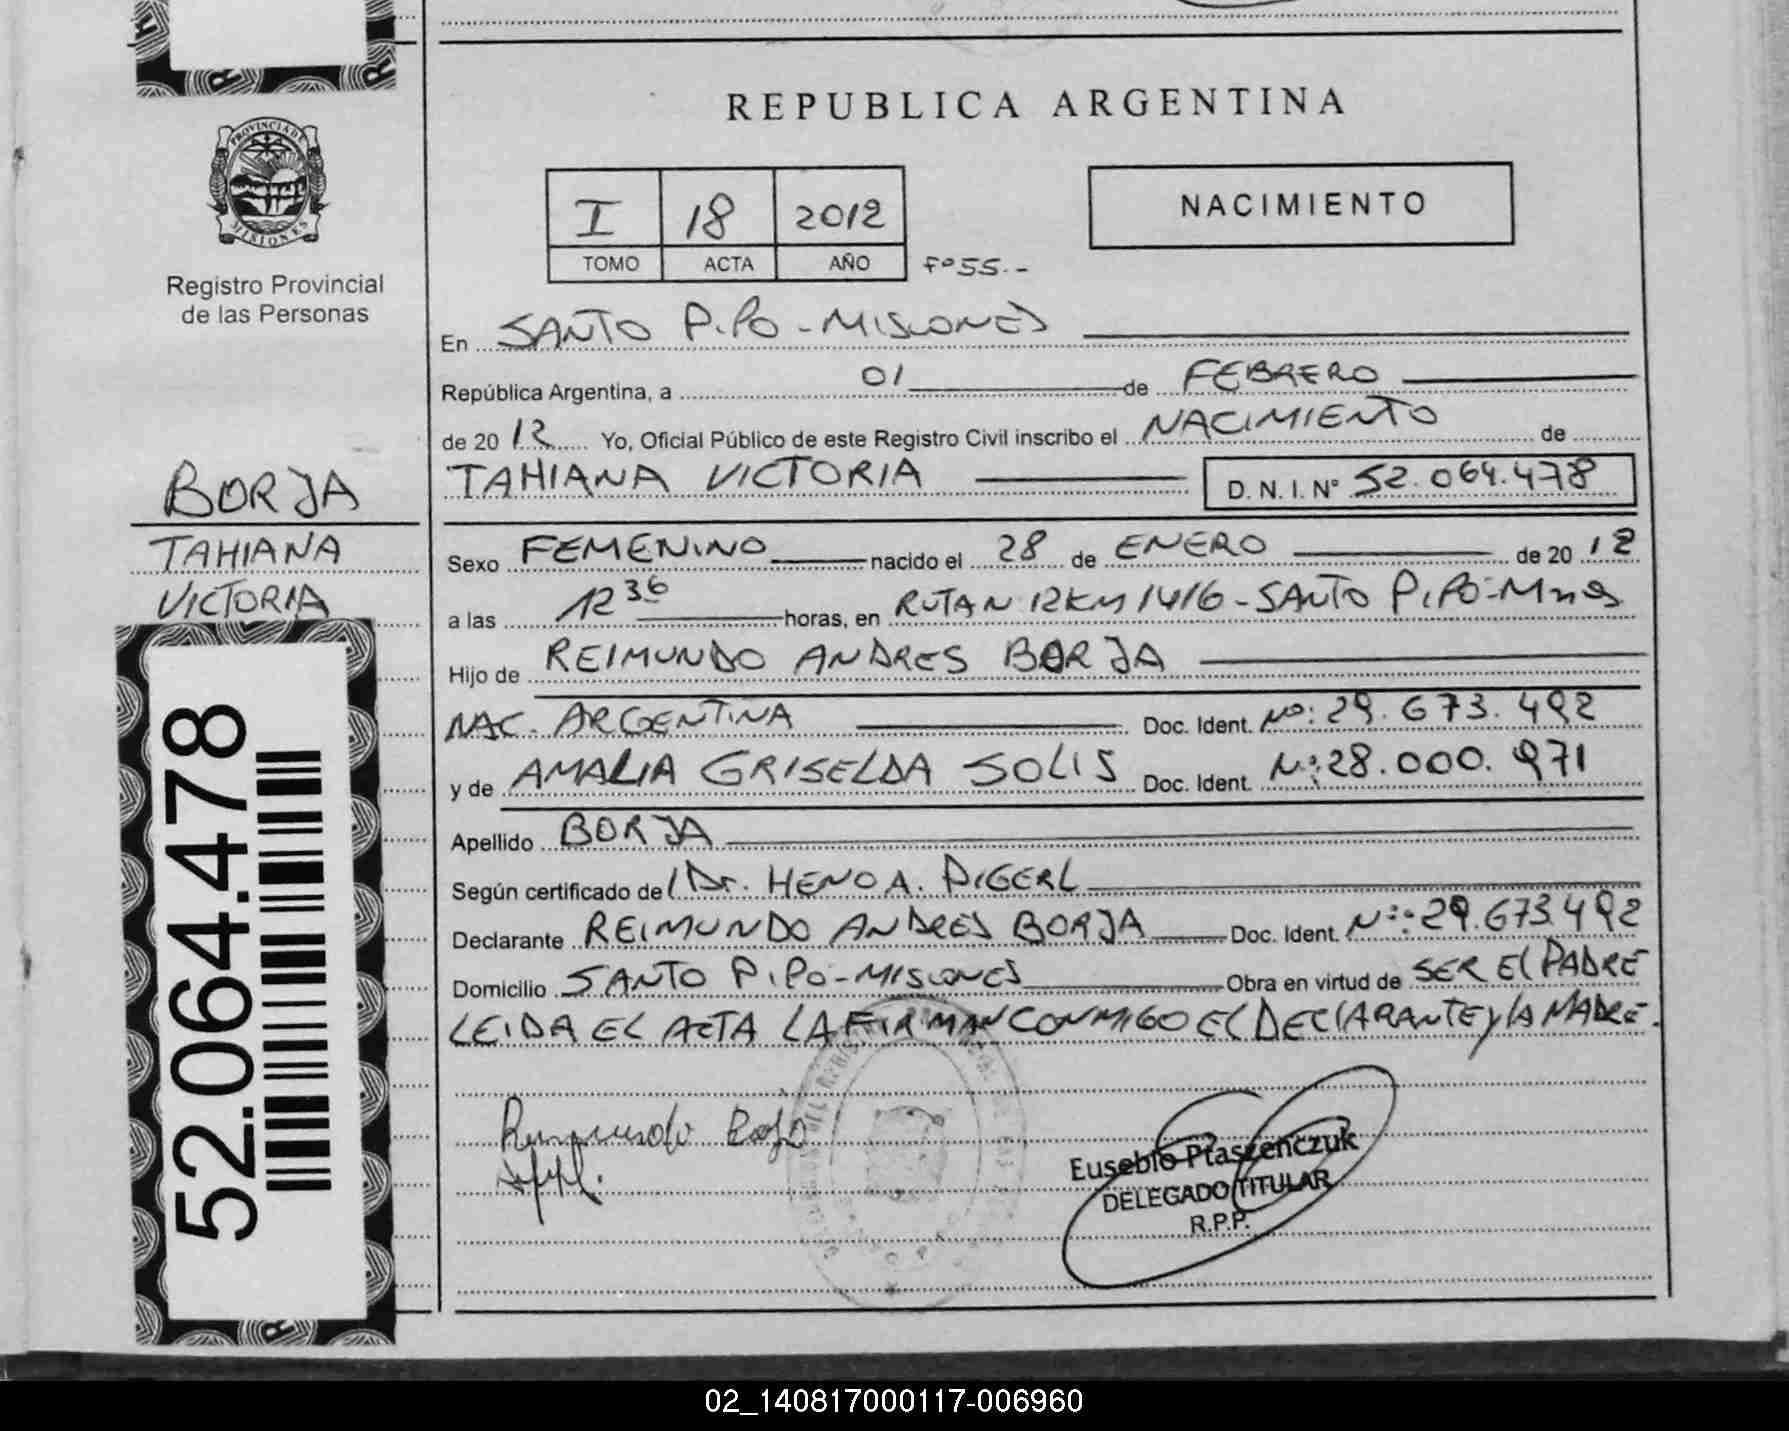 REPUBLICA ARGENTINA
PROVINCIA DE
MISIONES
Registro Provincial
de las Personas
I 18 2012
TOMO ACTA AÑO
Fº 55.-
NACIMIENTO
En SANTO PIPO - MISIONES
República Argentina, a 01 de FEBRERO
de 20 12 Yo, Oficial Público de este Registro Civil inscribo el NACIMIENTO de
TAHIANA VICTORIA D.N.I. Nº 52.064.478
BORJA
TAHIANA
VICTORIA
52.064.478
Sexo FEMENINO nacido el 28 de ENERO de 20 12
a las 12 36 horas, en RUTA N 12 KM 1416 - SANTO PIPO - Mnes
Hijo de REIMUNDO ANDRES BORJA
NAC. ARGENTINA Doc. Ident. Nº: 29.673.492
y de AMALIA GRISELDA SOLIS Doc. Ident. Nº: 28.000.971
Apellido BORJA
Según certificado del Dr. HENO A. PIGERL
Declarante REIMUNDO ANDRES BORJA Doc. Ident. Nº: 29.673.492
Domicilio SANTO PIPO - MISIONES Obra en virtud de SER El PADRE
LEIDA EL ACTA LA FIRMAN CONMIGO EL DEClARANTE y lA MADRE.
Eusebio Ptaszenczuk
DELEGADO TITULAR
R.P.P.
02_140817000117-006960